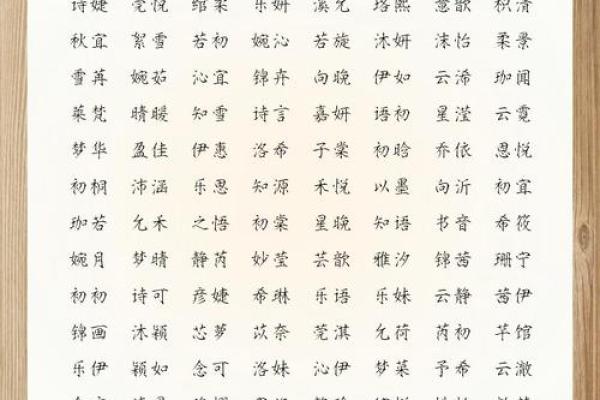 诗婕 莞悦 绾柔 乐妍 溪允 珞熙 意歆 积清
秋宜 絮雪 若初 婉沁 若旋 沐妍 沫怡 柔景
雪苒 婉茹 沁宜 锦卉 向晚 伊如 云浠 珈闻
菜梵 晴暖 知雪 诗言 嘉妍 语初 星滢 云霓
梦华 盈佳 伊惠 洛希 子棠 初晗 乔依 思悦
初桐 沛涵 乐思 知源 禾悦 以墨 向沂 初宜
珈若 允禾 之悟 初棠 星晚 知语 书音 希筱
婉月 梦晴 静芮 妙莹 芸歆 雅汐 锦茜 珊宁
初初 诗可 彦婕 希琳 乐语 乐妹 云静 茜伊
锦画 沐颖 芯萝 苡奈 莞淇 允荷 芮初 芊馆
乐伊 颖如 念可 洛妹 沁伊 梦菜 予希 云澈